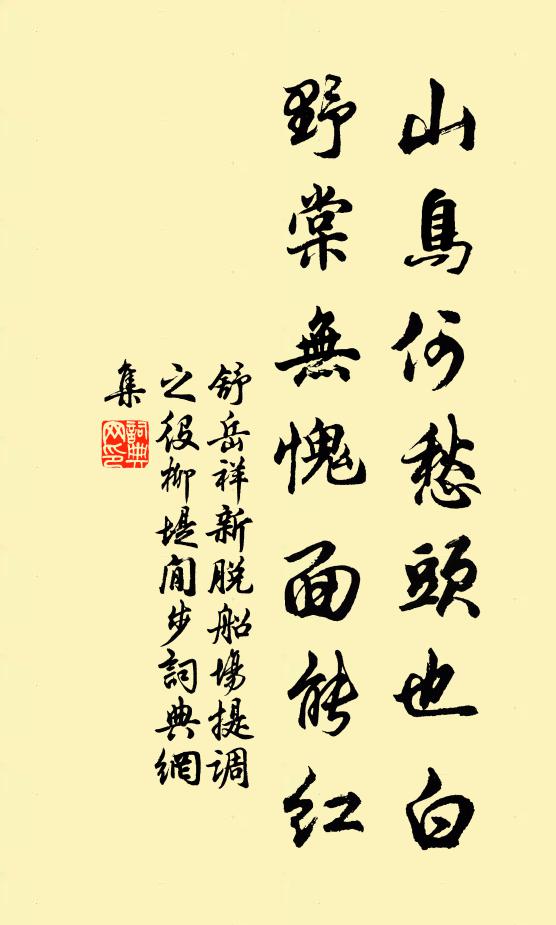 山鳥何愁頭也白
野棠無愧面能紅
舒岳祥新脫船場提調
之役柳堤閒步詞典網
集
詞典
网印